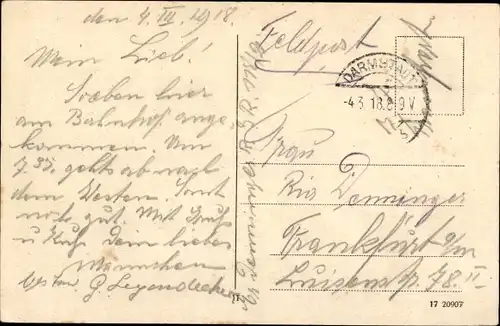 den 4. III. 1918.
Mein Lieb!
Soeben hier
am Bahnhof ange-
kommen. Um
7.35. gehts ab nach
dem Westen. Sonst
noch gut. Mit Gruß
u. Kuß Dein liebes
Männchen
G. Legendecker
Feldpost
DARMSTADT
-4.3.18.8-9V
Frau
Ria Denninger
Frankfurt a/m
Luisenstr. 78. II.
17 20907